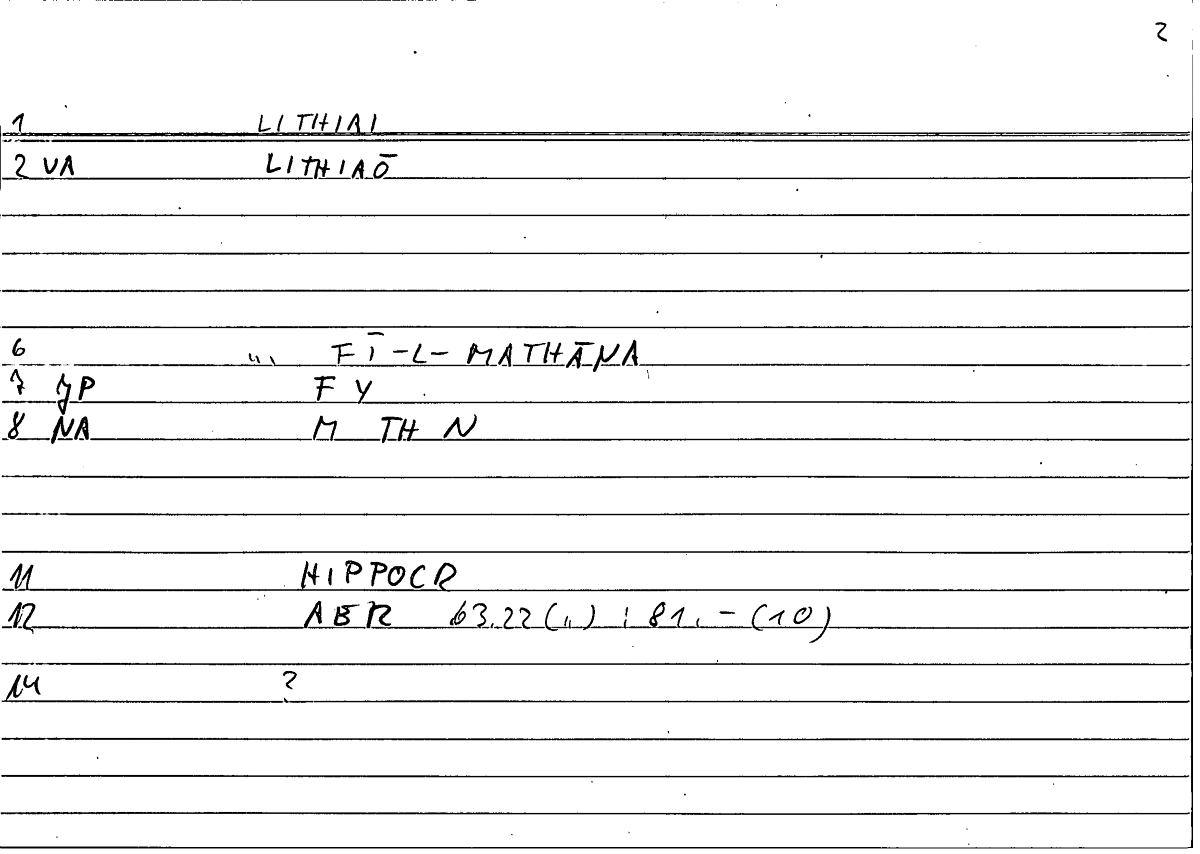 2
1 LITHIAI
2 VA LITHIAŌ
6 ... FĪ-L-MATHĀNA
7 YP F Y
8 NA M TH N
11 HIPPOCR
12 AER 63.22 („) ; 81. - (10)
14 ?